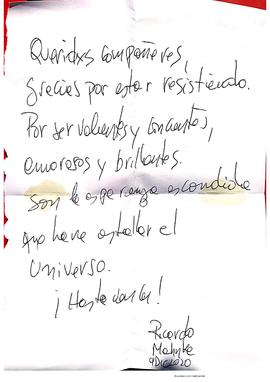 Queridxs compañeres,
Gracias por estar resistiendo.
Por ser valientes y
amorosos y brillantes.
Son la esperanza escondida
que hace estallar el
Universo.
¡Hasta
Ricardo
9 Dic 2020